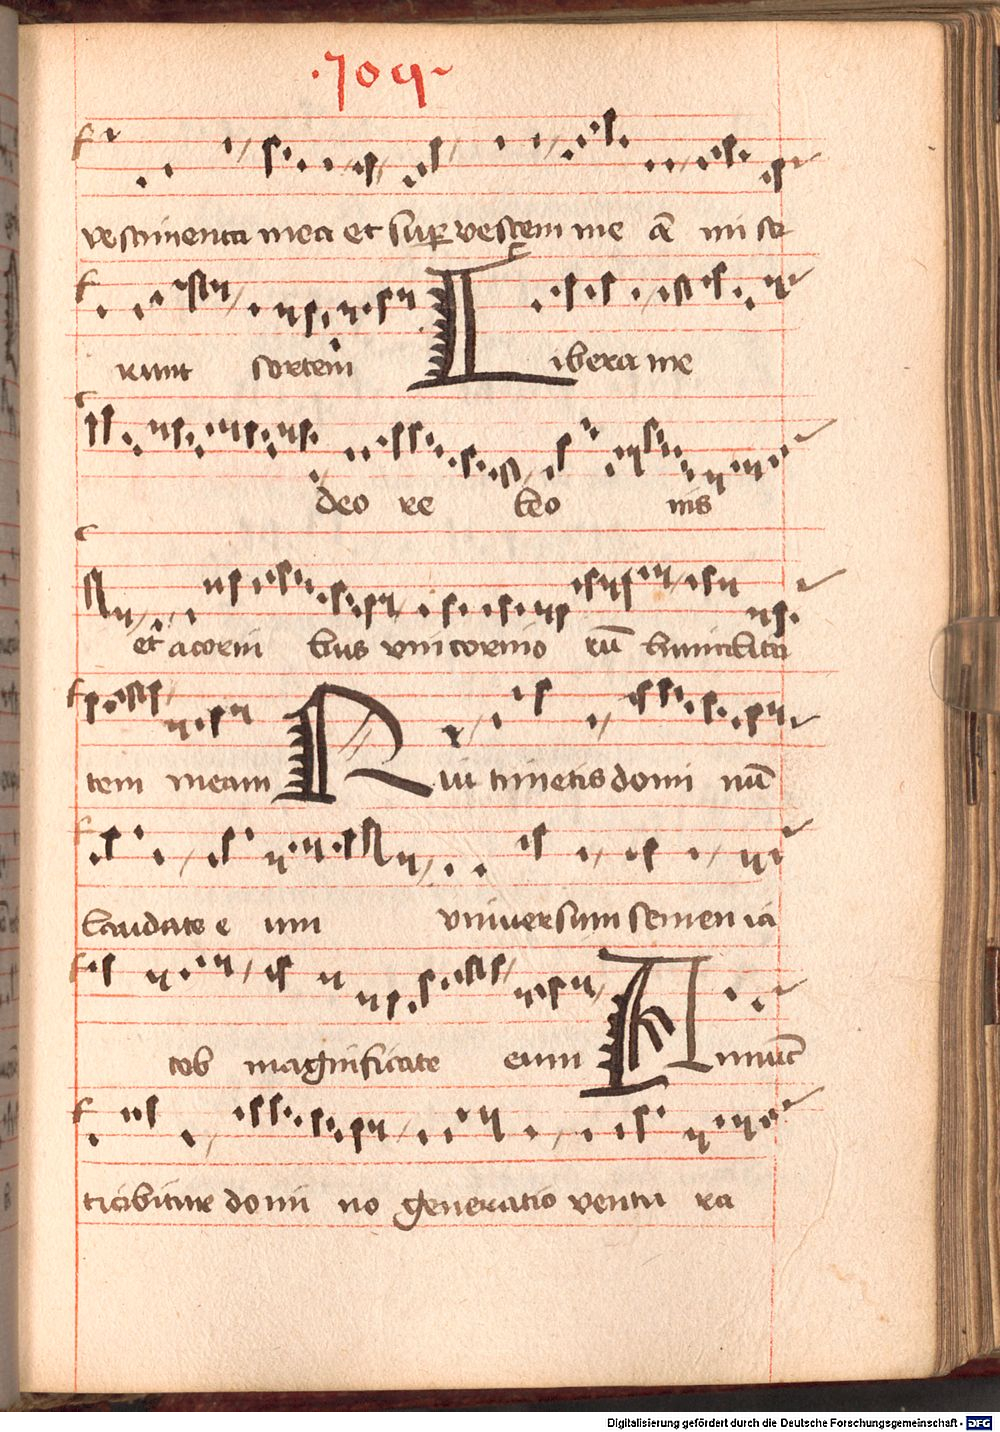 ·709·
vestimenta mea et sup vestem me ā mi se
runt sortem Libera me
deo re leo nis
et a corni bus vnicornio rū humilita
tem meam Qui timetis domi nū
laudate e um vniuersum semen ia
cob magnificate eum Annūc
tiabitur domi no generatio ventu ra
Digitalisierung gefördert durch die Deutsche Forschungsgemeinschaft - DFG